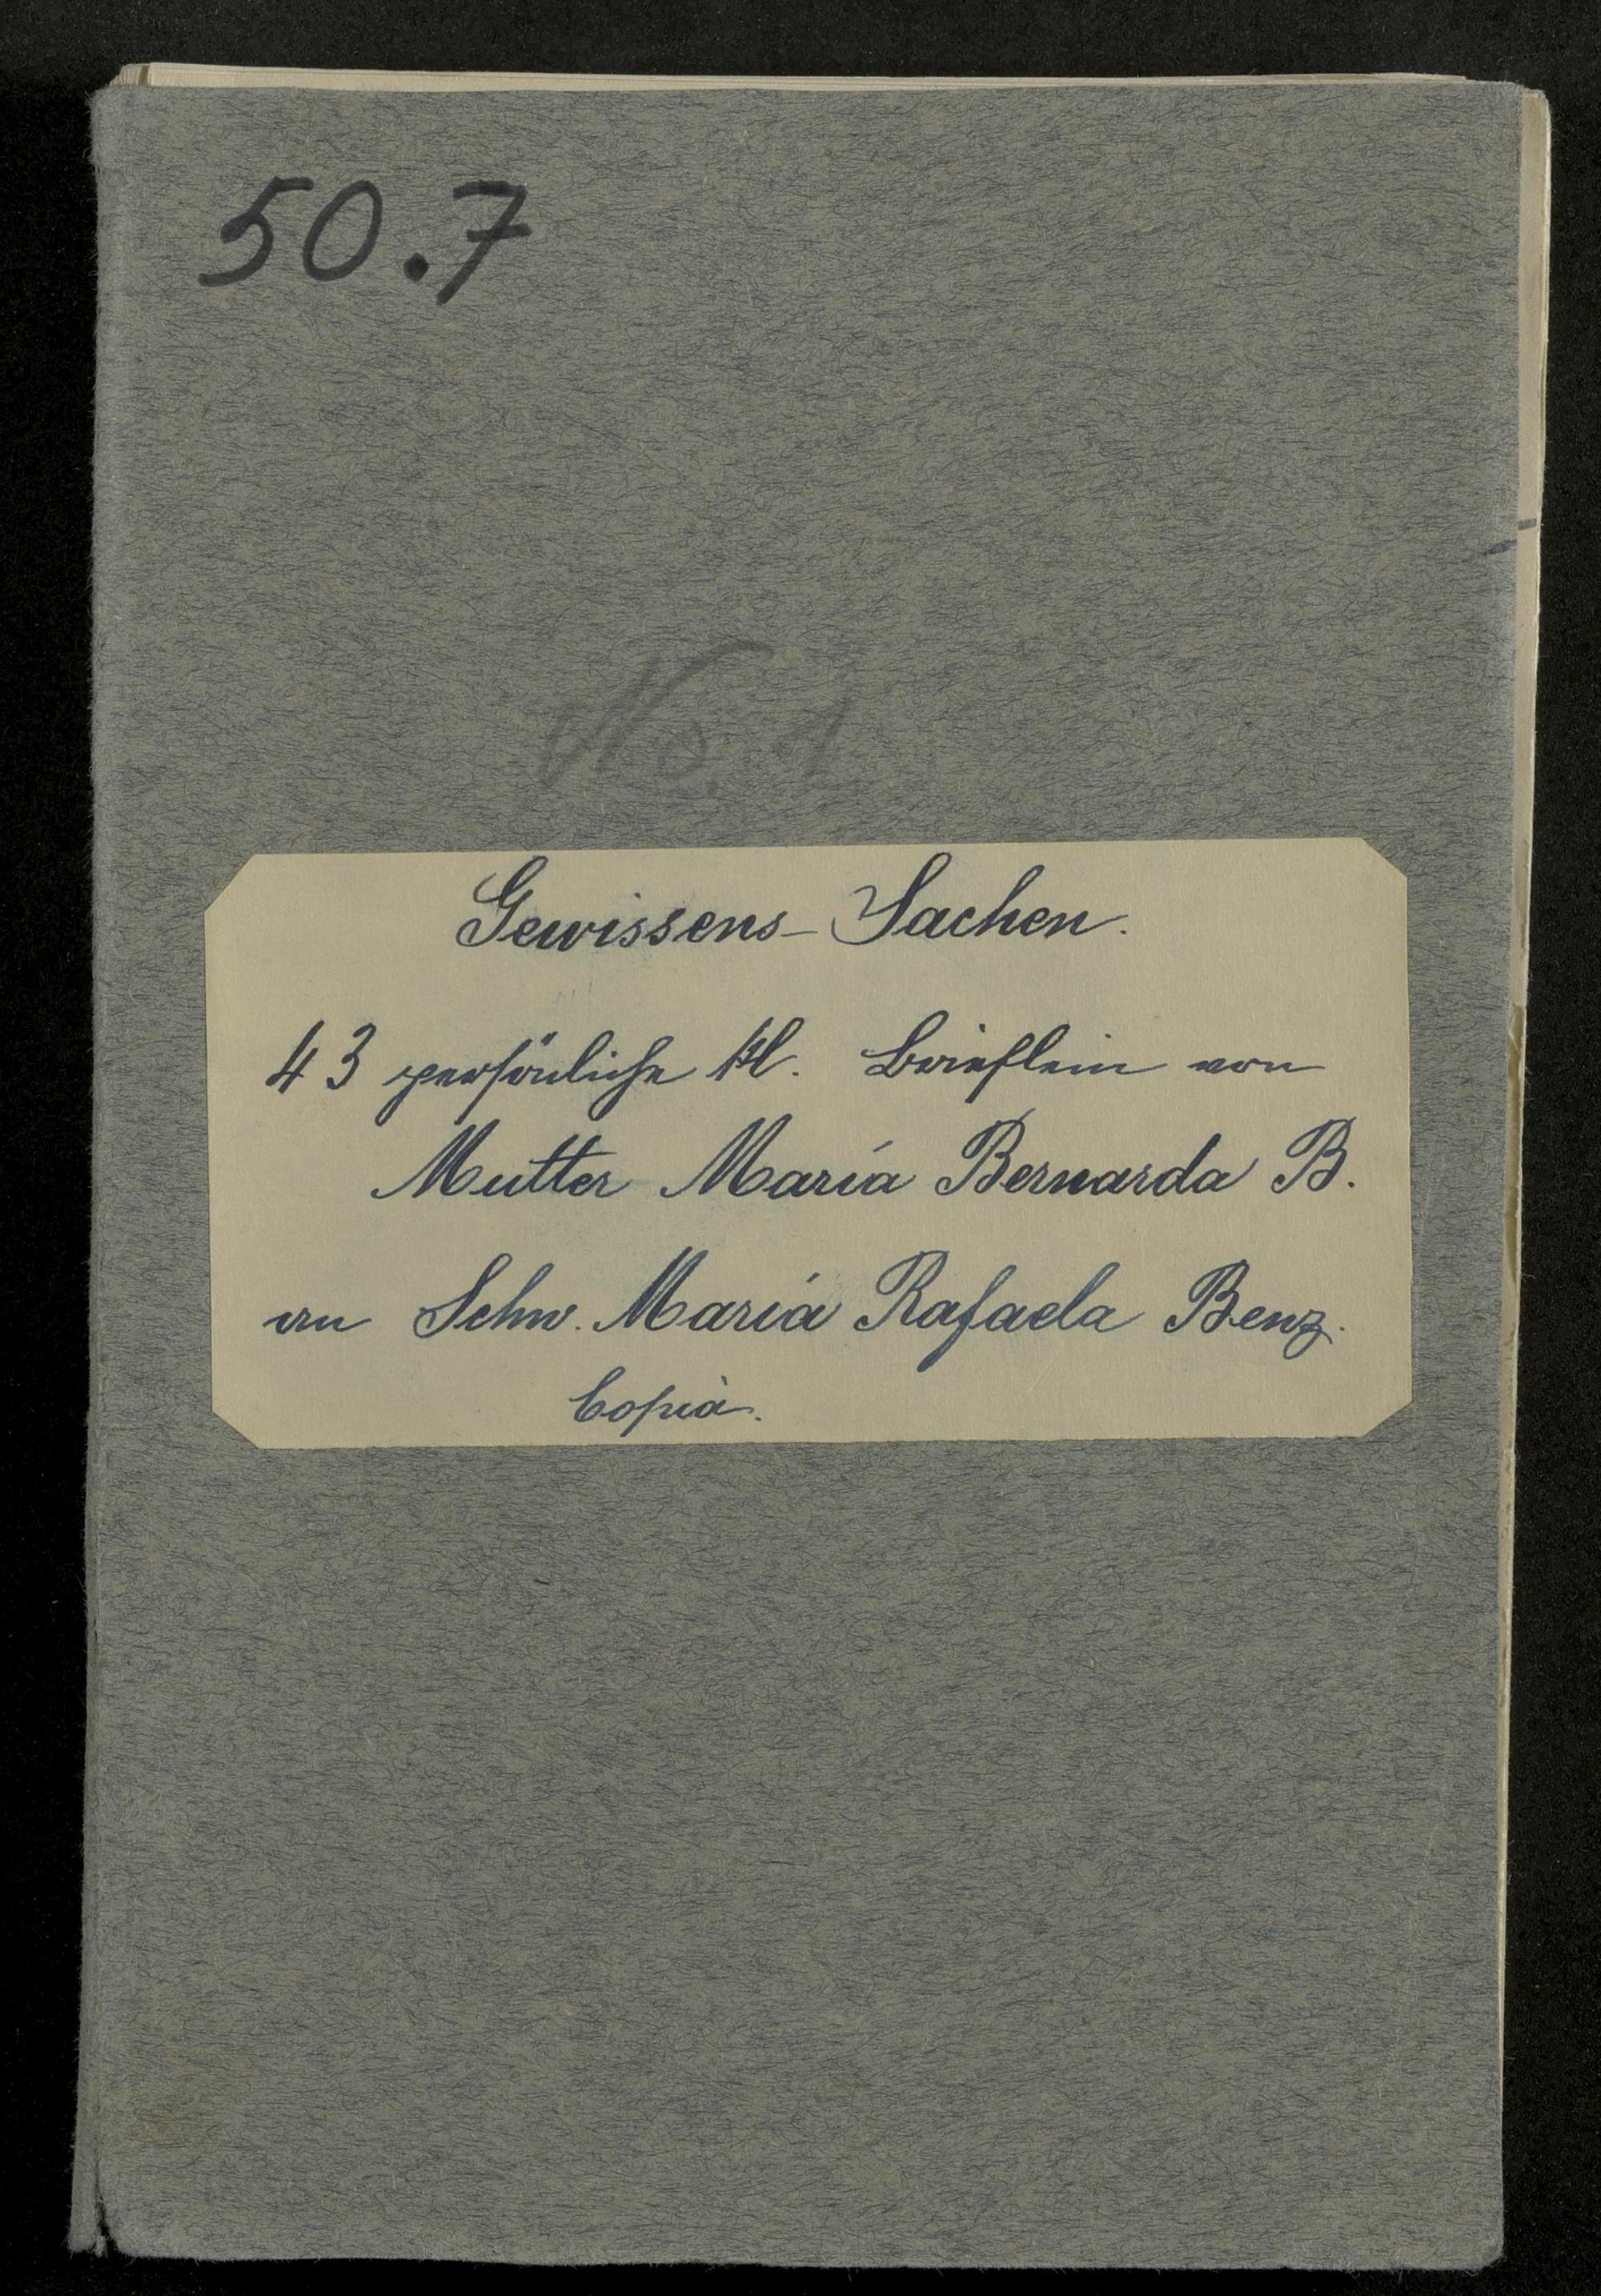 50.7
No. 1
Gewissens-Sachen.
43 persönliche kl. Brieflein von
Mutter Maria Bernarda B.
an Schw. Maria Rafaela Benz.
Copia.